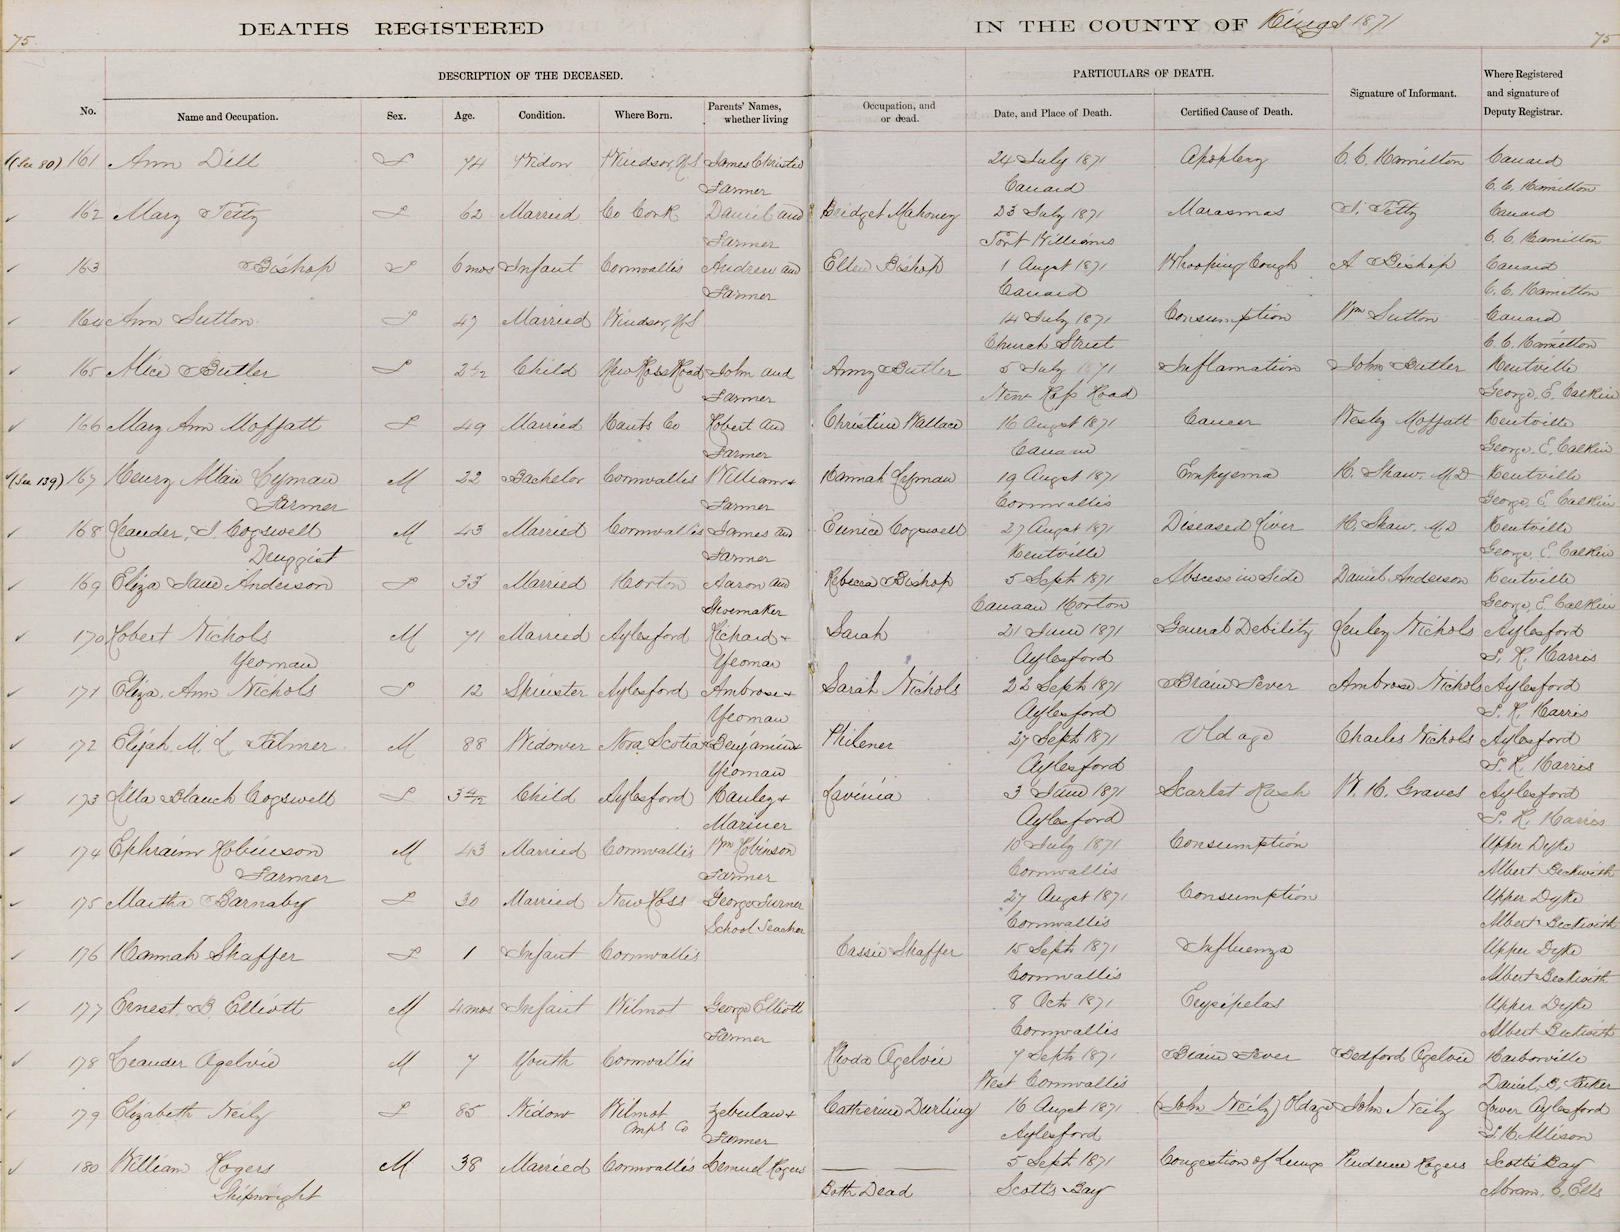 75
DEATHS REGISTERED IN THE COUNTY OF Kings 1871
75
DESCRIPTION OF THE DECEASED. PARTICULARS OF DEATH. Where Registered and signature of Deputy Registrar.
No. Name and Occupation. Sex. Age. Condition. Where Born. Parents' Names, whether living Occupation, and or dead. Date, and Place of Death. Certified Cause of Death. Signature of Informant.
✓(See 80) 161 Ann Dill F 74 Widow Windsor, N.S James Christie 24 July 1871 Apoplexy C. C. Hamilton Canard
Farmer Canard C. C. Hamilton
✓ 162 Mary Tetty F 62 Married Co Cork Daniel and Bridget Mahoney 23 July 1871 Marasmas T. Tetty Canard
Farmer Port Williams C. C. Hamilton
✓ 163 Bishop F 6 mos Infant Cornwallis Andrew and Ellen Bishop 1 August 1871 Whooping Cough A Bishop Canard
Farmer Canard C. C. Hamilton
✓ 164 Ann Sutton F 47 Married Windsor, N.S 14 July 1871 Consumption Wm Sutton Canard
Church Street C. C. Hamilton
✓ 165 Alice Butler F 2 1/2 Child New Ross Road John and Anny Butler 5 July 1871 Inflamation John Butler Kentville
Farmer New Ross Road George, E, Calkin
✓ 166 Mary Ann Moffatt F 49 Married Hants Co Robert and Christine Wallace 16 August 1871 Cancer Wesley Moffatt Kentville
Farmer Canaan George, E, Calkin
✓(See 139) 167 Henry Allan Lyman M 22 Bachelor Cornwallis William & Hannah Lyman 19 August 1871 Empyema H. Shaw. M,D Kentville
Farmer Farmer Cornwallis George, E, Calkin
✓ 168 Leander, S. Cogswell M 43 Married Cornwallis James and Eunice Cogswell 27 August 1871 Diseased Liver H. Shaw. M,D Kentville
Druggist Farmer Kentville George, E, Calkin
✓ 169 Eliza Jane Anderson F 33 Married Horton Aaron and Rebecca Bishop 5 Sept 1871 Abscess in Side Daniel Anderson Kentville
Shoemaker Canaan Horton George, E, Calkin
✓ 170 Robert Nichols M 71 Married Aylesford Richard & Sarah 21 June 1871 General Debility Henley Nichols Aylesford
Yeoman Yeoman Aylesford S. R. Harris
✓ 171 Eliza, Ann Nichols F 12 Spinster Aylesford Ambrose & Sarah Nichols 22 Sept 1871 Brain Fever Ambrose Nichols Aylesford
Yeoman Aylesford S. R. Harris
✓ 172 Elijah, M. L. Palmer M 88 Widower Nova Scotia Benjamin & Philener 27 Sept 1871 Old age Charles Nichols Aylesford
Yeoman Aylesford S. R. Harris
✓ 173 Blanch Cogswell F 3 4/12 Child Aylesford Hanley & Lavinia 3 June 1871 Scarlet Rash W. H. Graves Aylesford
Mariner Aylesford S. R. Harris
✓ 174 Ephraim Robinson M 43 Married Cornwallis Wm Robinson 10 July 1871 Consumption Upper Dyke
Farmer Farmer Cornwallis Albert Beckwith
✓ 175 Martha Barnaby F 30 Married New Ross George Turner 27 August 1871 Consumption Upper Dyke
School Teacher Cornwallis Albert Beckwith
✓ 176 Hannah Shaffer F 1 Infant Cornwallis Cassie Shaffer 15 Sept 1871 Influenza Upper Dyke
Cornwallis Albert Beckwith
✓ 177 Ernest. B Elliott M 4 mos Infant Wilmot George Elliott 8 Oct 1871 Erysipelas Upper Dyke
Farmer Cornwallis Albert Beckwith
✓ 178 Leander Ogelvie M 7 Youth Cornwallis Rhoda Ogelvie 7 Sept 1871 Brain Fever Bedford Ogelvie Harborville
West Cornwallis Daniel, B, Parker
✓ 179 Elizabeth Neily F 85 Widow Wilmot Zebulan & Catherine Durling 16 August 1871 (John Neily) Old age John Neily Lower Aylesford
Anps Co Farmer Aylesford
✓ 180 William Rogers M 38 Married Cornwallis Lemuel Rogers 5 Sept 1871 Congestion of Lungs Prudence Rogers Scotts Bay
Shipwright Both Dead Scotts Bay Abram. C. Ells